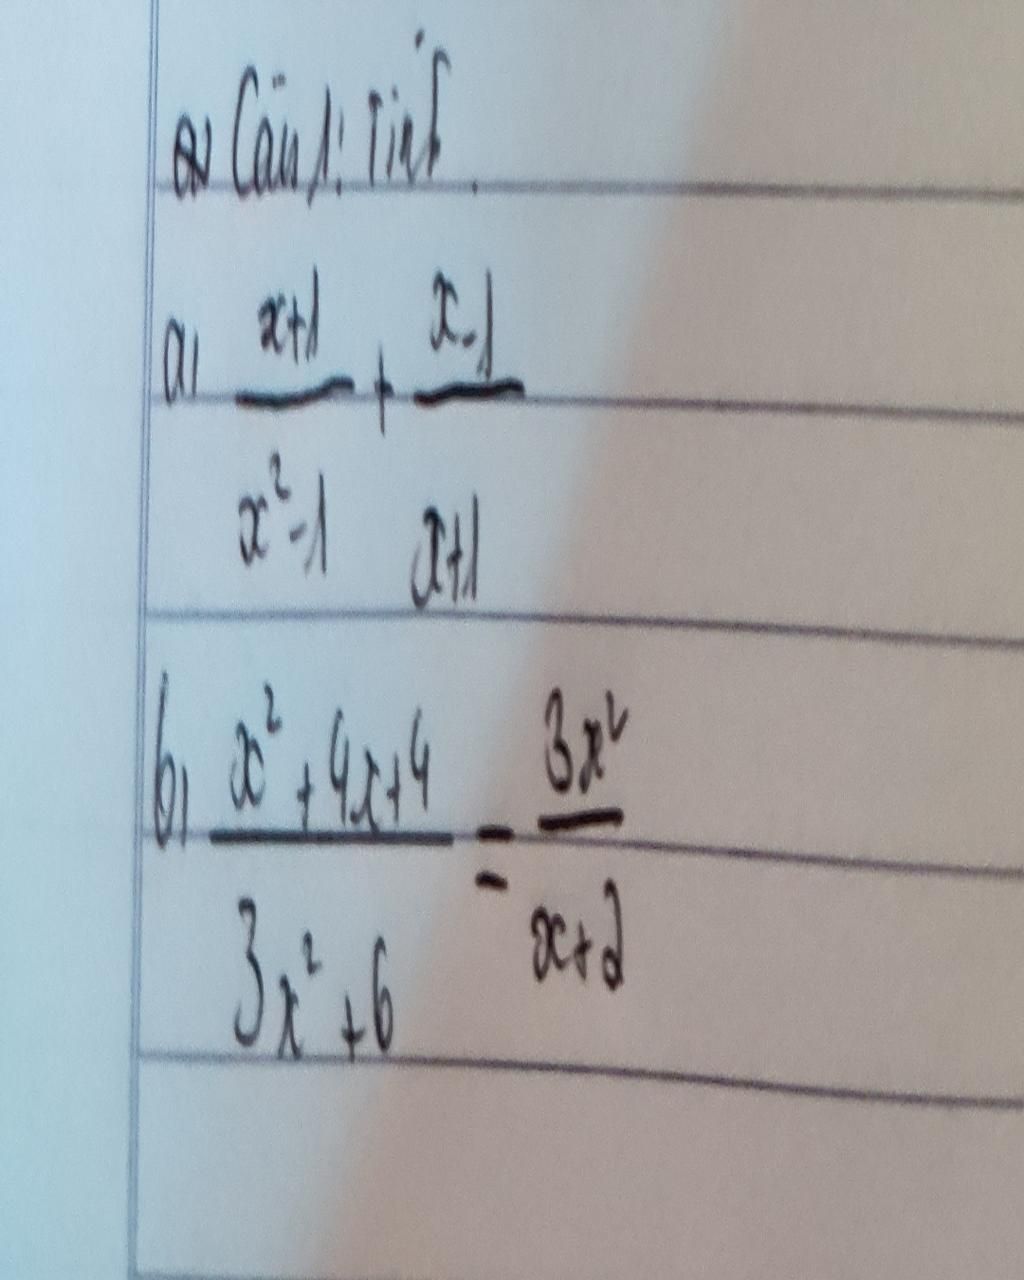 Câu 1: Tính.
a) \frac{x+1}{x^2-1} + \frac{x-1}{x+1}
b) \frac{x^2+4x+4}{3x^2+6} = \frac{3x^2}{x+2}